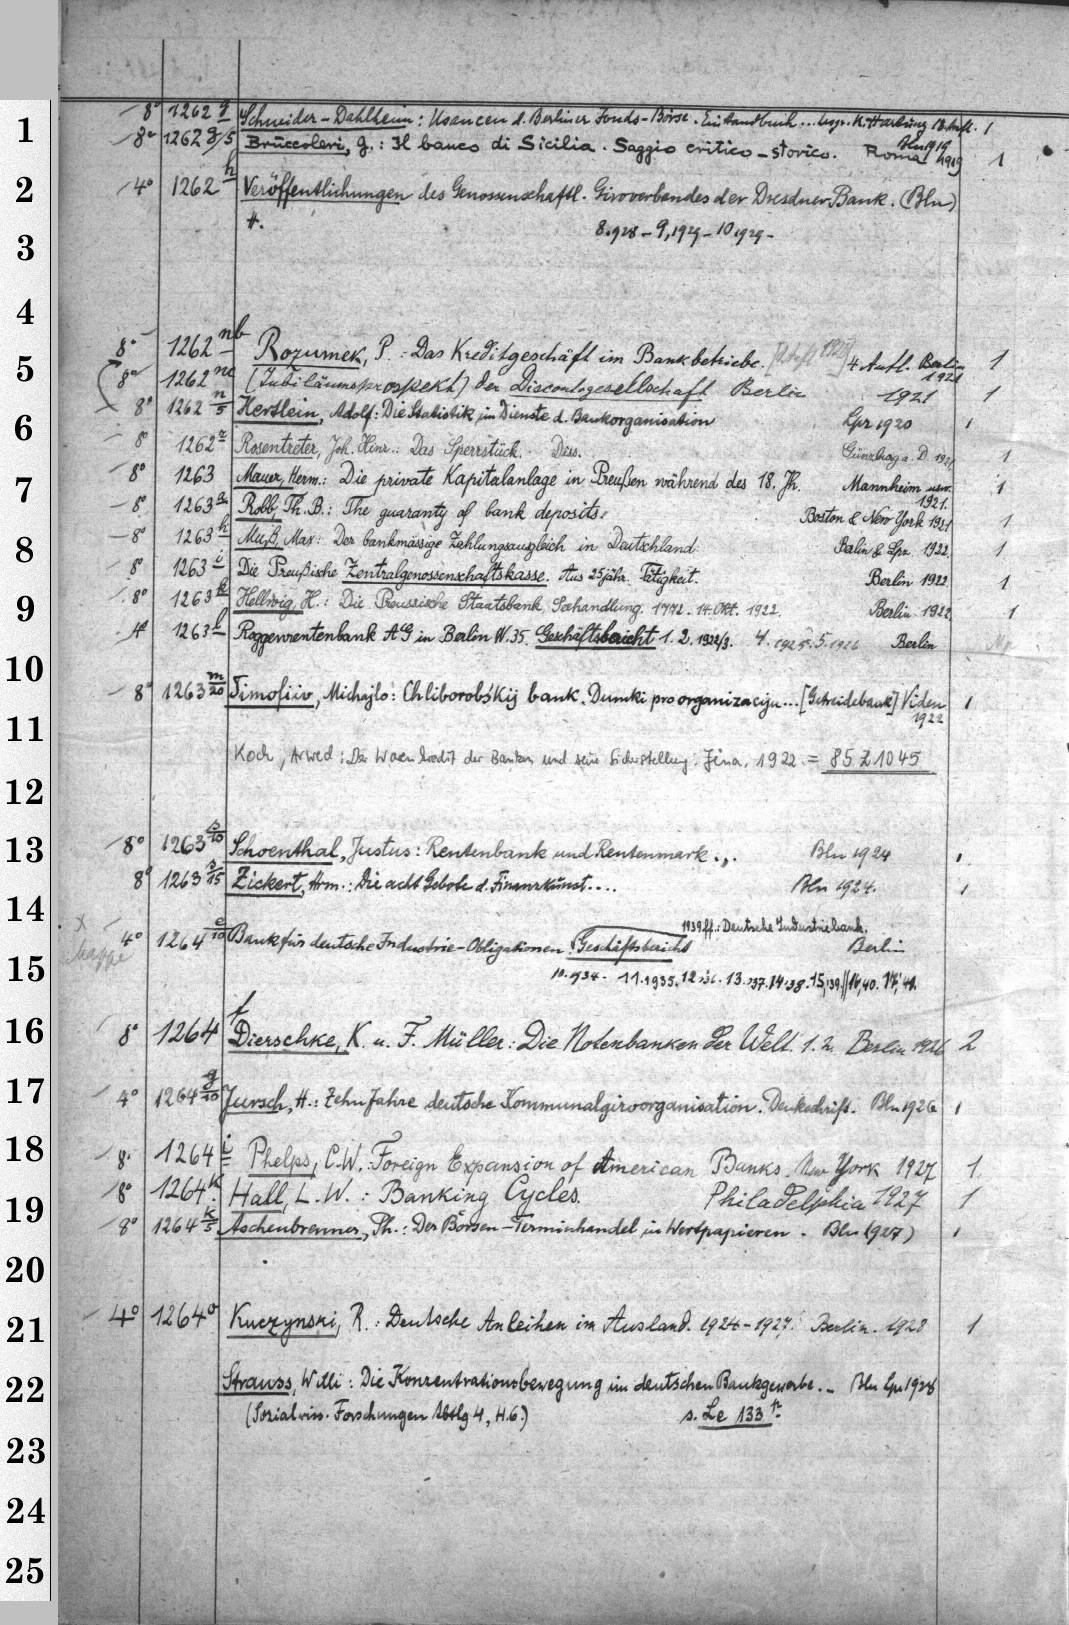 1
8° 1262 g Schneider-Dahlheim: Usancen d. Berliner Fonds-Börse. Ein Handbuch... 18. Aufl. Bln 1919 1
8° 1262 g/5 Bruccoleri, G.: Il banco di Sicilia. Saggio critico-storico. Roma 1919 1
2
4° 1262 h Veröffentlichungen des Genossenschaftl. Giroverbandes der Dresdner Bank. (Bln)
4. 8.928 – 9,1929 – 10 1929 –
3
4
8° 1262 nb Rozumek, P.: Das Kreditgeschäft im Bankbetriebe. 4. Aufl. Berlin 1921 1
5
8° 1262 nc (Jubiläumsprospekt) der Discontogesellschaft Berlin 1921 1
8° 1262 n/5 Hertlein, Adolf: Die Statistik im Dienste d. Bankorganisation Lpz 1920 1
6
8° 1262 Rosentreter, Joh. Hinr.: Das Sperrstück. Diss. Günzburg a. D. 1921 1
8° 1263 Mauer, Herm.: Die private Kapitalanlage in Preußen während des 18. Jh. Mannheim usw. 1921. 1
7
8° 1263 a Robb, Th. B.: The guaranty of bank deposits. Boston & New York 1921 1
8
8° 1263 h Muß, Max: Der bankmässige Zahlungsausgleich in Deutschland Berlin & Lpz. 1922. 1
8° 1263 i Die Preußische Zentralgenossenschaftskasse. Aus 25jähr. Tätigkeit. Berlin 1922 1
9
8° 1263 k Hellwig, H.: Die Preussische Staatsbank, Seehandlung. 1772. 14. Okt. 1922. Berlin 1922 1
4° 1263 l Roggenrentenbank AG in Berlin W. 35. Geschäftsbericht 1. 2. 1922/3. 4. 1925. 5. 1926 Berlin
10
8° 1263 m/20 Timofiiv, Michajlo: Chliborobśkij bank. Dumki pro organizaciju... [Getreidebank] Viden 1922 1
11
Koch, Arwed: Der Warenkredit der Banken und seine Sicherstellung. Jena, 1922 = 85 Z 1045
12
13
8° 1263 s/10 Schoenthal, Justus: Rentenbank und Rentenmark... Bln 1924 1
8° 1263 s/15 Zickert, Hrm.: Die acht Gebote d. Finanzkunst.... Bln 1924. 1
14
1939 ff.: Deutsche Industriebank.
x Mappe 4° 1264 e/10 Bank für deutsche Industrie-Obligationen. Geschäftsbericht Berlin
15
10.934 – 11.1935. 12.'36. 13.'37. 14.'38. 15,'39. // 16,'40. 17,'41.
16
8° 1264 f Dierschke, K. u. F. Müller: Die Notenbanken der Welt. 1. 2. Berlin 1926 2
17
4° 1264 g/10 Jursch, H.: Zehn Jahre deutsche Kommunalgiroorganisation. Denkschrift. Bln 1926 1
18
8° 1264 i Phelps, C.W.: Foreign Expansion of American Banks. New York 1927 1
8° 1264 k Hall, L. W.: Banking Cycles. Philadelphia 1927 1
19
8° 1264 k/5 Aschenbrenner, Th.: Der Börsen-Terminhandel in Wertpapieren. Bln 1927) 1
20
21
4° 1264 o Kuczynski, R.: Deutsche Anleihen im Ausland. 1924-1927. Berlin. 1928 1
22
Strauss, Willi: Die Konzentrationsbewegung im deutschen Bankgewerbe. – Bln Lpz 1928
(Sozialwiss. Forschungen Abtlg 4, H. 6.) s. Le 133
23
24
25